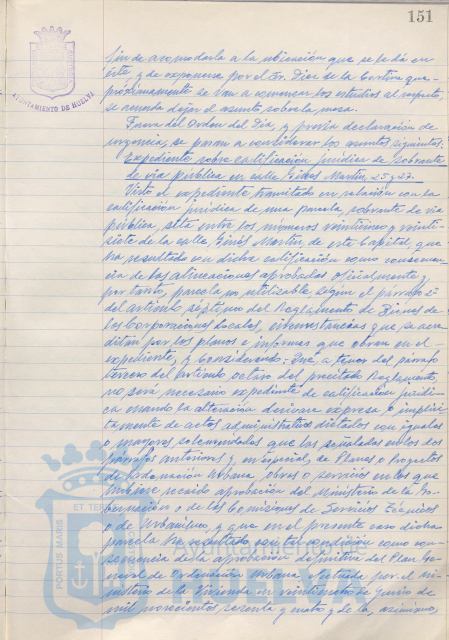 151
AYUNTAMIENTO DE HUELVA
fin de acomodarla a la ubicación que se le dá en
éste y de exponerse por el Sr. Díaz de la Cortina que
próximamente se van a comenzar los estudios al respecto,
se acuerda dejar el asunto sobre la mesa.
Fuera del Orden del Día, y previa declaración de
urgencia, se pasan a considerar los asuntos siguientes:
Expediente sobre calificación jurídica de sobrante
de vía pública en calle Ginés Martín, 25 y 27.
Visto el expediente tramitado en relación con la
calificación jurídica de una parcela, sobrante de vía
pública, sita entre los números veinticinco y veinti-
siete de la calle Ginés Martín, de esta Capital, que
ha resultado con dicha calificación como consecuen-
cia de las alineaciones aprobadas oficialmente y,
por tanto, parcela no utilizable, según el párrafo 2º
del artículo séptimo del Reglamento de Bienes de
las Corporaciones Locales, circunstancias que se acre-
ditan por los planos e informes que obran en el
expediente, y Considerando: Que a tenor del párrafo
tercero del artículo octavo del precitado Reglamento,
no será necesario expediente de calificación jurídi-
ca cuando la alteración derivare expresa o implíci-
tamente de actos administrativos dictados con iguales
o mayores solemnidades que las señaladas en los dos
párrafos anteriores y en especial, de Planes o Proyectos
de Ordenación Urbana, obras o servicios en los que
hubiere recaído aprobación del Ministerio de la Go-
bernación o de las Comisiones de Servicios Técnicos
o de Urbanismo, y que en el presente caso dicha
parcela ha resultado con tal condición como con-
secuencia de la aprobación definitiva del Plan Ge-
neral de Ordenación Urbana, efectuada por el Mi-
nisterio de la Vivienda en veinticuatro de Junio de
mil novecientos sesenta y cuatro y de la, asimismo,
PORTUS MARIS
ET TER
Ayuntamiento de
HUELVA